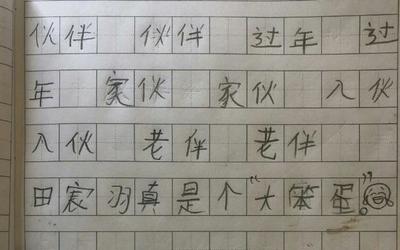 伙伴 伙伴 过年 过
年 家伙 家伙 入伙
入伙 老伴 老伴
田宸羽真是个“大笨蛋”